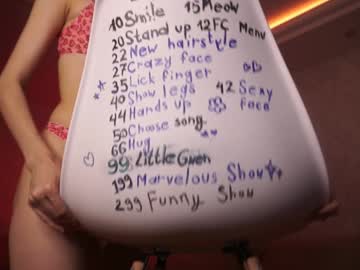 10 Smile 15 Meow
20 Stand up 12 FC Menu
22 New hairstyle
27 Crazy face
35 Lick finger
40 Show legs 42 Sexy face
44 Hands up
50 Choose song
66 Hug
99 Little Gwen
199 Marvelous Show
299 Funny Show